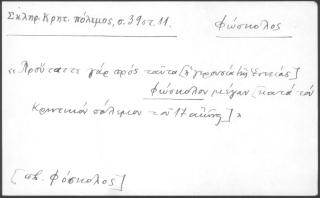 Σκληρ. Κρητ. πόλεμος, σ. 39 στ. 11. Φώσκολος
«Πρόσταττε γάρ πρός ταῦτα [ἡ γερουσία τῆς Βενετίας]
Φώσκολον μέγαν [κατά τόν
Κρητικόν πόλεμον τοῦ 17 αἰῶνος]»
[πβ. Φόσκολος]